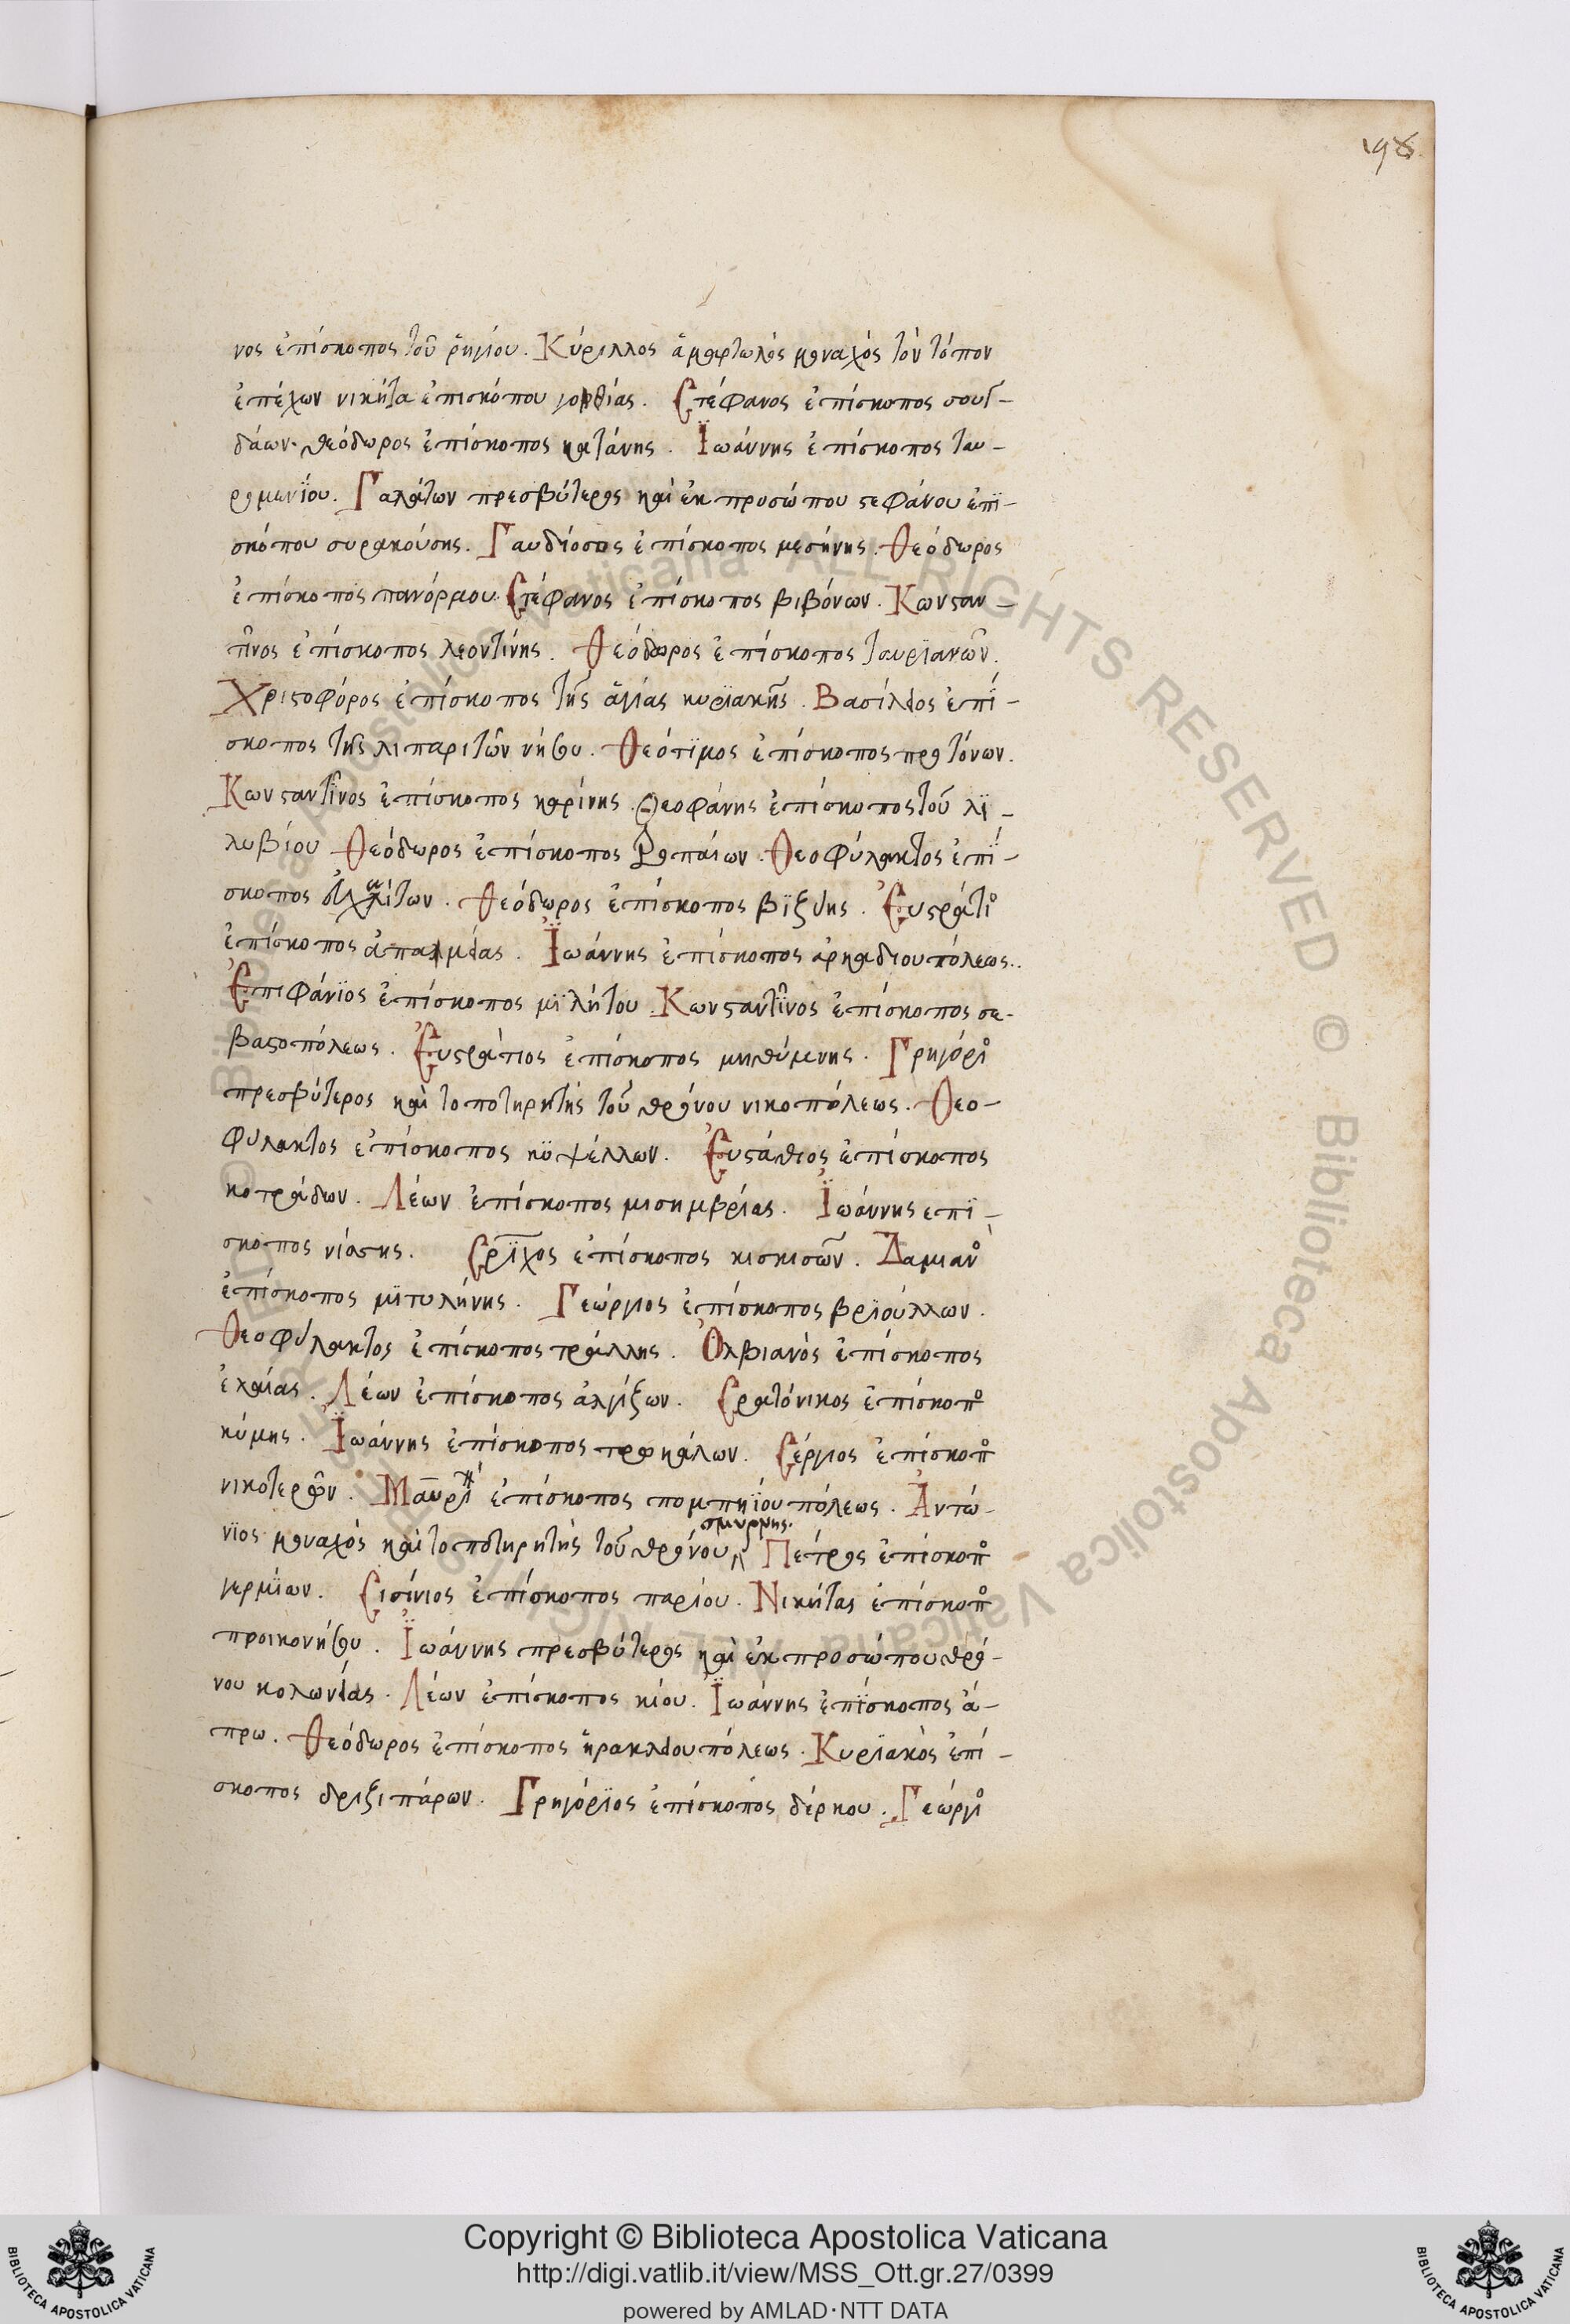 198.
νος ἐπίσκοπος τοῦ ῥηγίου. Κύριλλος ἁμαρτωλὸς μοναχὸς τὸν τόπον
ἐπέχων νικήτα ἐπισκόπου γορθίας. Στέφανος ἐπίσκοπος σουγ-
δάων. θεόδωρος ἐπίσκοπος κατάνης. Ϊωάννης ἐπίσκοπος ταυ-
ρομενΐου. Γαλάτων πρεσβύτερος καὶ ἐκ προσώπου στεφάνου ἐπϊ-
σκόπου συρακούσης. Γαυδίοσος ἐπίσκοπος μεσήνης. Θεόδωρος
ἐπίσκοπος πανόρμου. Στέφανος ἐπίσκοπος βιβόνων. Κωνσταν-
τῖνος ἐπίσκοπος λεοντίνης. Θεόδωρος ἐπίσκοπος ταυρϊανῶν.
Χριστοφόρος ἐπίσκοπος τῆς ἁγίας κυρϊακῆς. Βασίλειος ἐπί-
σκοπος τῆς λιπαριτῶν νήσου. Θεότϊμος ἐπίσκοπος προτόνων.
Κωνσταντῖνος ἐπίσκοπος καρίνης. Θεοφάνης ἐπίσκοπος τοῦ λϊ-
λυβίου Θεόδωρος ἐπίσκοπος Ῥοπαίων. Θεοφύλακτος ἐπΐ-
σκοπος Θεόδωρος ἐπίσκοπος βϊζύης. Εὐστράτιος
ἐπίσκοπος ἀπαμείας. Ϊωάννης ἐπίσκοπος ἀρκαδιουπόλεως.
Ἐπιφάνϊος ἐπίσκοπος μϊλήτου. Κωνσταντῖνος ἐπίσκοπος σε-
βαστοπόλεως. Εὐστράτιος ἐπίσκοπος μηθύμνης. Γρηγόριος
πρεσβύτερος καὶ τοποτηρητὴς τοῦ θρόνου νικοπόλεως. Θεο-
φύλακτος ἐπίσκοπος κϋψέλλων. Εὐστάθιος ἐπίσκοπος
κοτράδων. Λέων ἐπίσκοπος μισημβρίας. Ϊωάννης επϊ-
σκοπος νίσσης. Σρῖχος ἐπίσκοπος κισκισῶν. Δαμιανὸς
ἐπίσκοπος μϊτυλήνης. Γεώργιος ἐπίσκοπος βρϊούλλων.
Θεοφύλακτος ἐπίσκοπος τράλλης. Ὀλβιανὸς ἐπίσκοπος
ἐλαίας. Λέων ἐπίσκοπος ἀλγίζων. Σρατόνικος ἐπίσκοπος
κύμης. Ϊωάννης ἐπίσκοπος τροκάλων. Σέργιος ἐπίσκοπος
νικοτερῶν. ἐπίσκοπος πομπηΐουπόλεως. Ἀντώ-
νϊος μοναχὸς καὶ τοποτηρητὴς τοῦ θρόνου σμυρνης. Πέτρος ἐπίσκοπος
γερμίων. Σισίνιος ἐπίσκοπος παρίου. Νικήτας ἐπίσκοπος
προικονήσου. Ϊωάννης πρεσβύτερος καὶ ἐκ προσώπου θρό-
νου κολωνείας. Λέων ἐπίσκοπος κίου. Ϊωάννης ἐπΐσκοπος ἄ-
πρω. Θεόδωρος ἐπίσκοπος ἡρακλειουπόλεως. Κυρϊακὸς ἐπί-
σκοπος δριζιπάρων. Γρηγόρϊος ἐπίσκοπος δέρκου. Γεώργιος
© Biblioteca Apostolica Vaticana ALL RIGHTS RESERVED
Copyright © Biblioteca Apostolica Vaticana
http://digi.vatlib.it/view/MSS_Ott.gr.27/0399
powered by AMLAD·NTT DATA
BIBLIOTECA APOSTOLICA VATICANA
BIBLIOTECA APOSTOLICA VATICANA